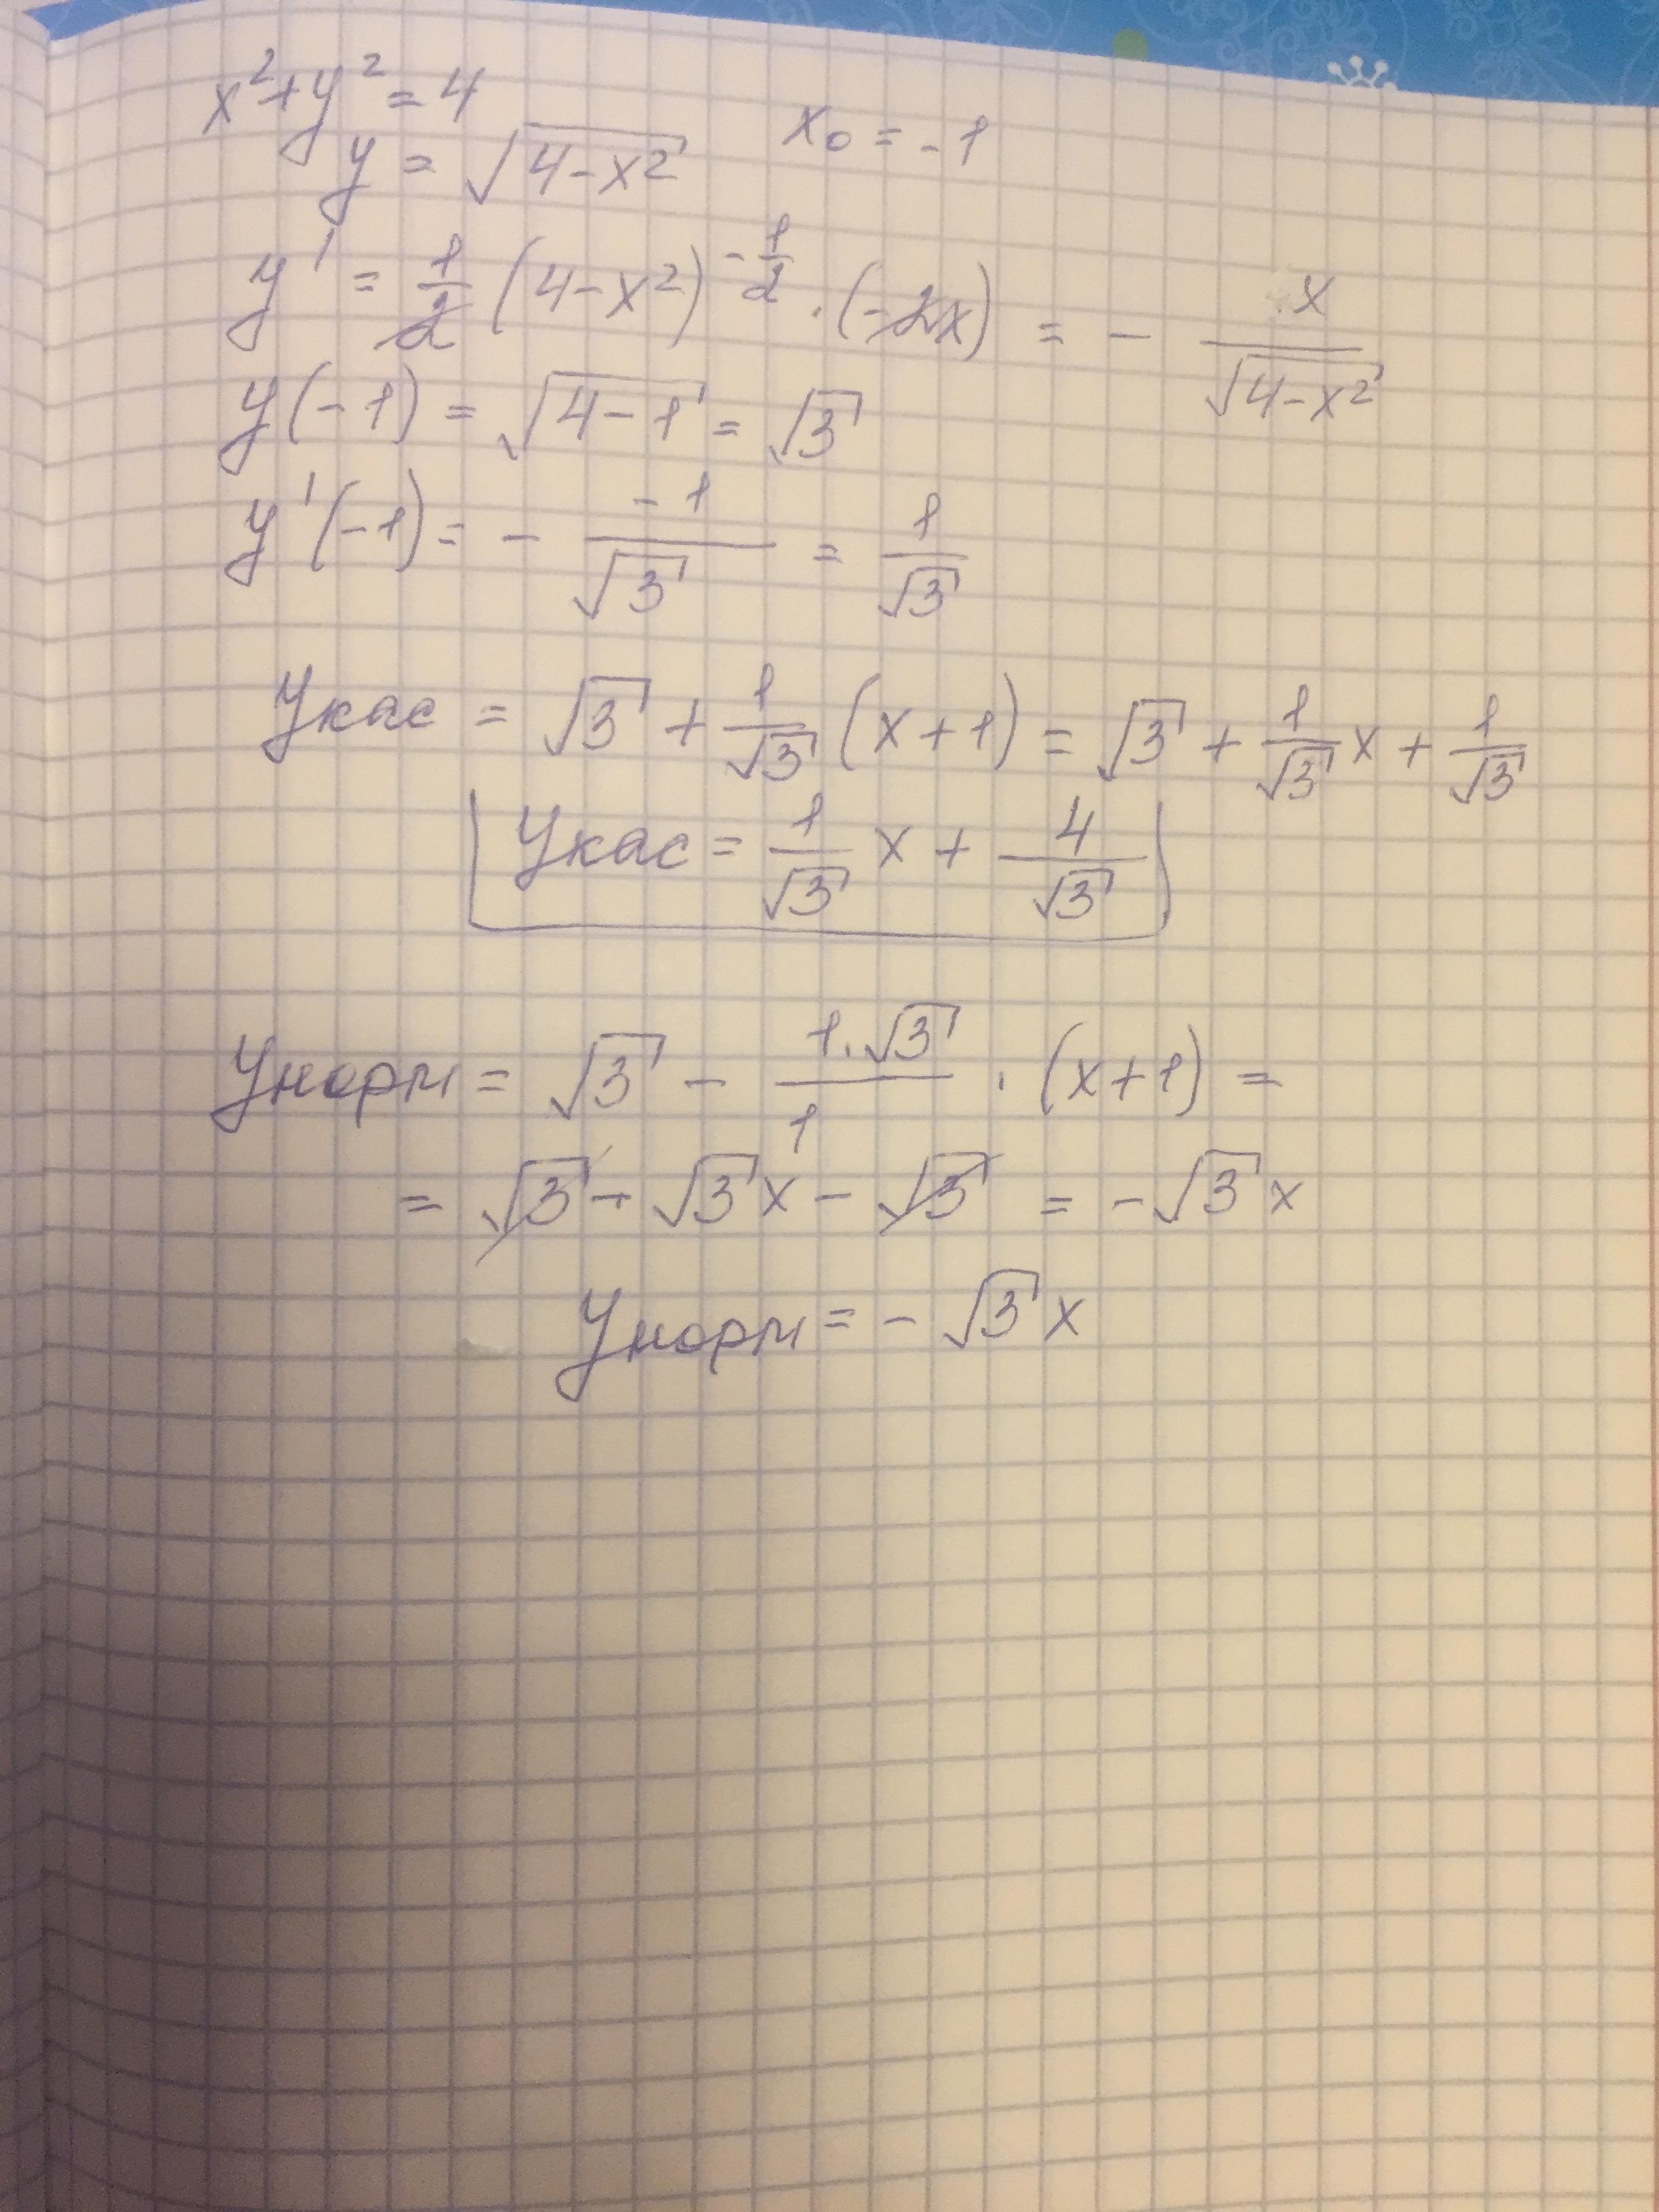 x² + y² = 4
y = √(4-x²) x₀ = -1
y' = 1/2 (4-x²)^(-1/2) · (-2x) = - x/√(4-x²)
y(-1) = √(4-1) = √3
y'(-1) = - -1/√3 = 1/√3
Укас = √3 + 1/√3 (x+1) = √3 + 1/√3 x + 1/√3
Укас = 1/√3 x + 4/√3
Унорм = √3 - 1·√3/1 · (x+1) =
= √3 - √3 x - √3 = -√3 x
Унорм = -√3 x